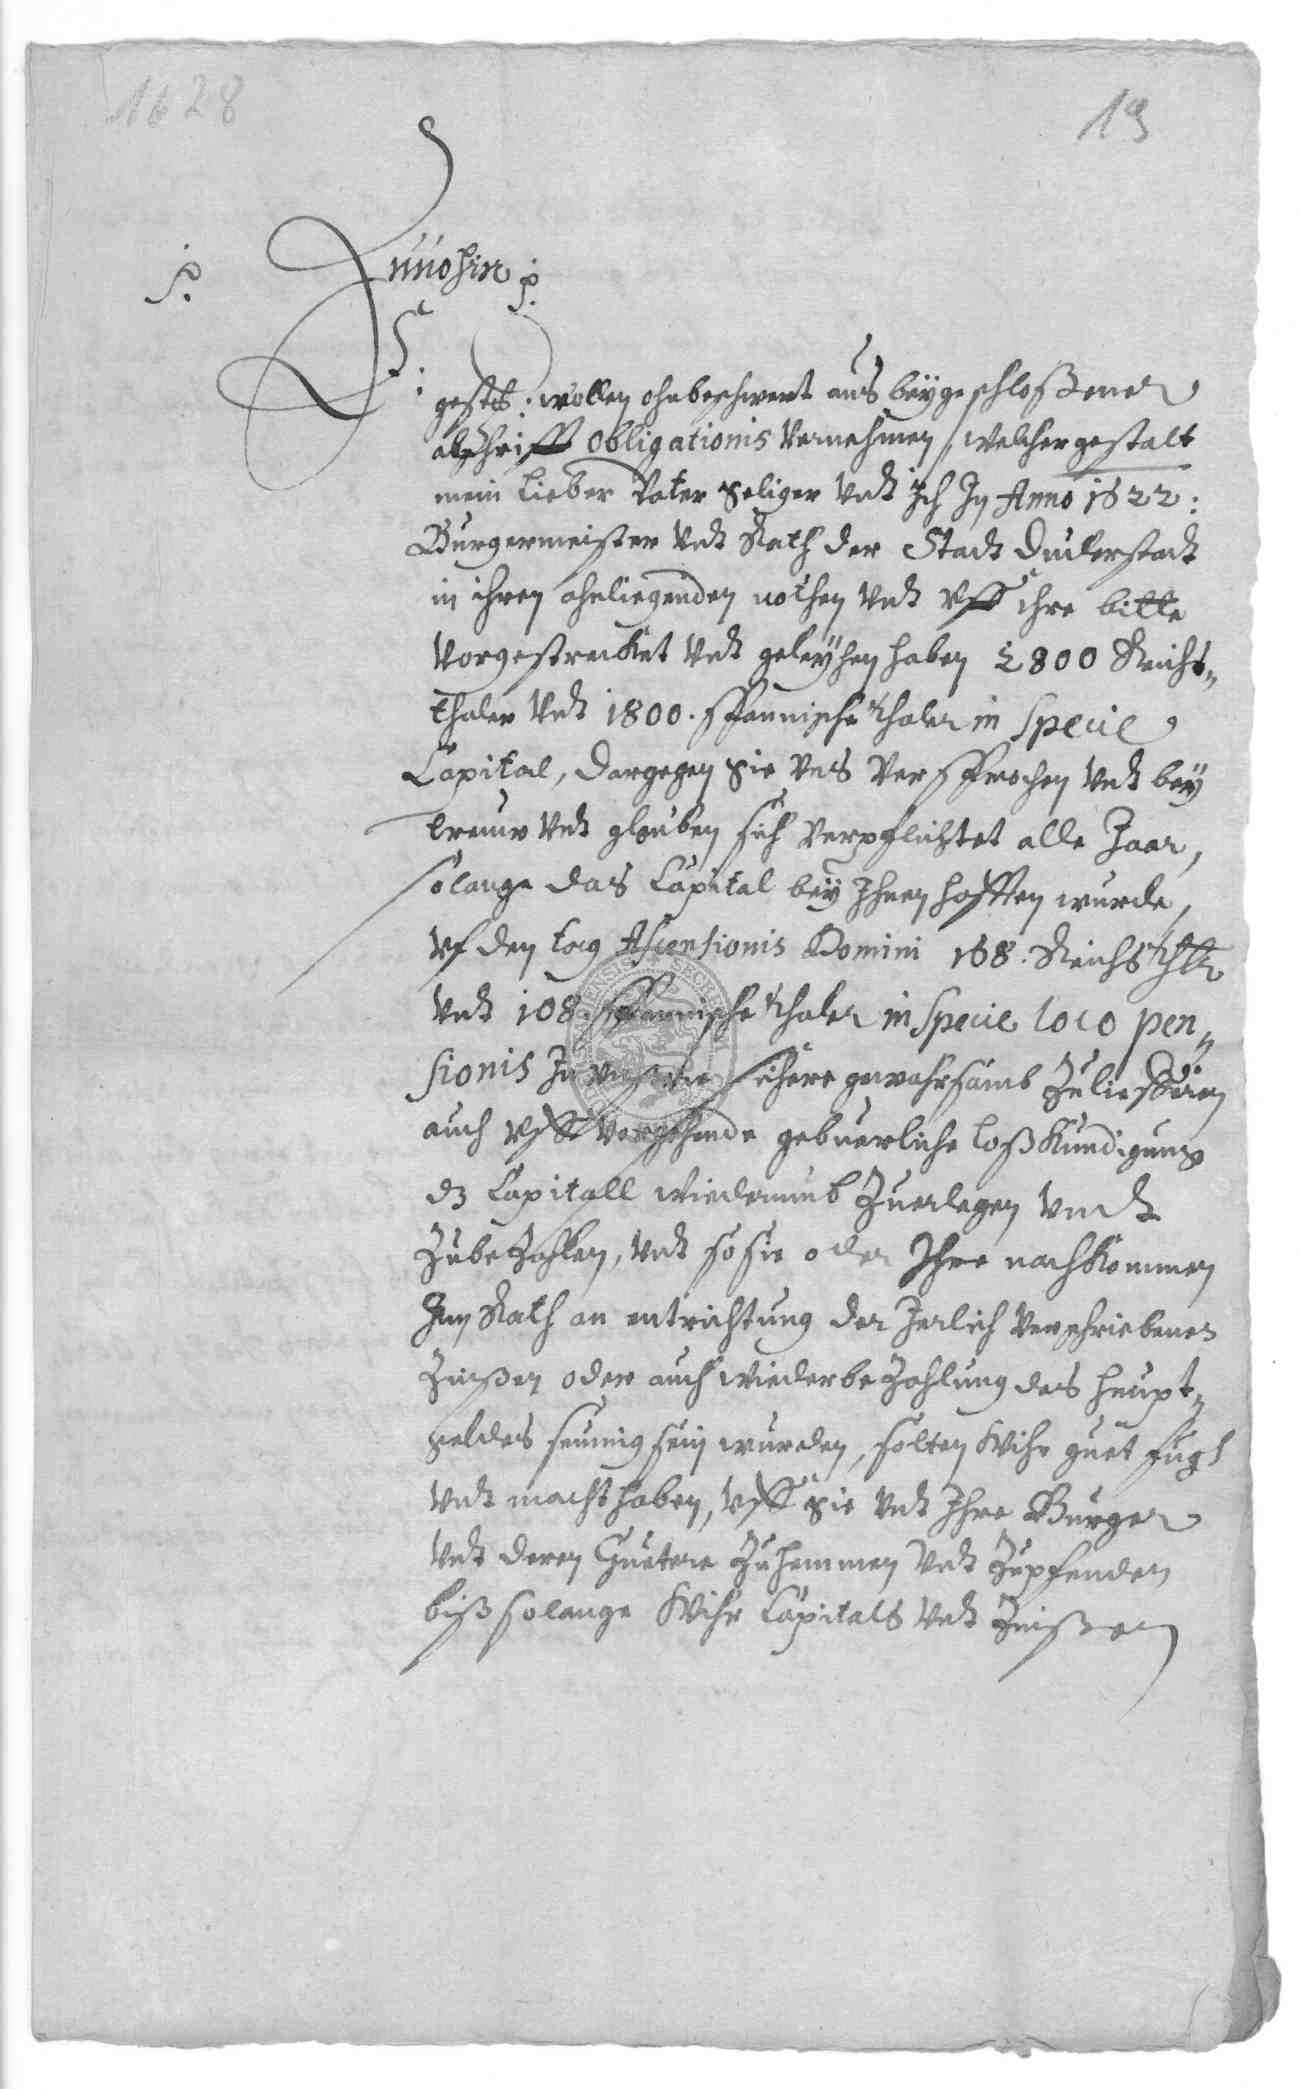 1628
19
P.
Immohin p.
E:
gestr: wollen ohnbeschwert aus beygeschloßener
abschrifft obligationis vernehmen, welcher gestalt
mein lieber Vater Seliger undt ich In Anno 1622:
Burgermeister undt Rath der Stadt Duderstadt
in ihren ahnliegenden nöthen undt uff ihre bitte
vorgestrecket undt geleyhen haben 2800 Reichs„
thaler undt 1800. spannische thaler in specie
Capital, dargegen sie uns versprochen undt bey
trewe undt glauben sich verpflichtet alle Jaar,
solange das Capital bey Ihnen hafften wurde,
uf den tag Ascensionis Domini 168. Reichsthlr
undt 108. spannische thaler in specie loco pen„
sionis In unsere sichere gewahrsamb zulieffern
auch uff vorgehende gebuerliche loßkundigung
dz Capitall wiederumb zuerlegen undt
zubezahlen, undt so sie oder Ihre nachkommen
Im Rath an entrichtung der Jerlich verschriebener
Zinßen oder auch wiederbezahlung des heupt„
geldes seumig sein wurden, solten Wihr guet fug
undt macht haben, uff sie undt Ihre Burger
undt deren Guetere zuhemmen undt zupfenden
biß solange Wihr Capitals undt Zinßen